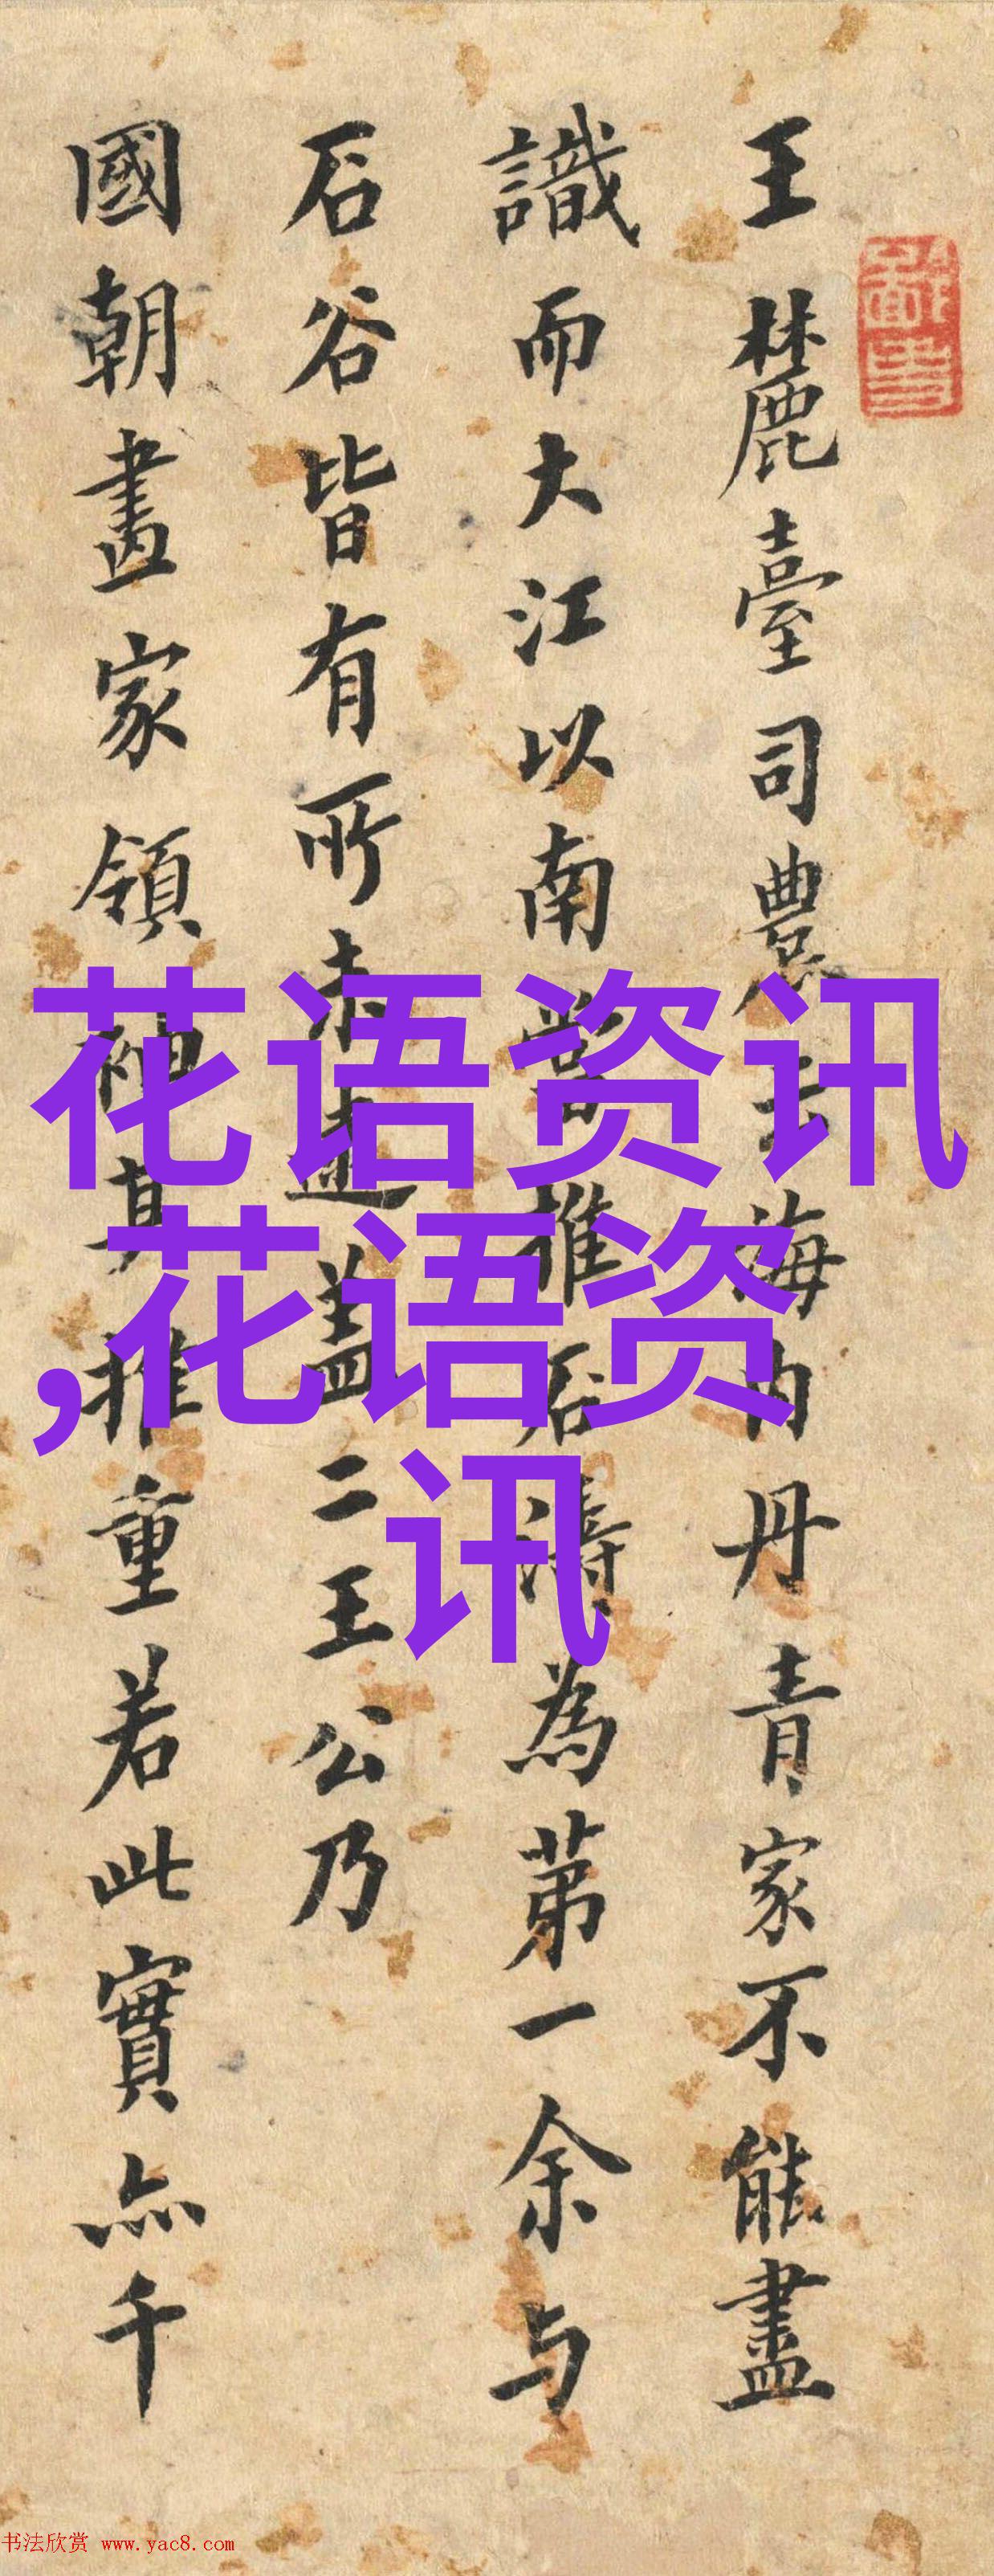 王麓臺司農云海内丹青家不能盡
識而大江以南當推石濤為第一余与
石谷皆有所未逮盖二王公乃
國朝畫家領袖其推重若此實亦千
花语资讯
,花语资
讯
书法欣赏 www.yac8.com